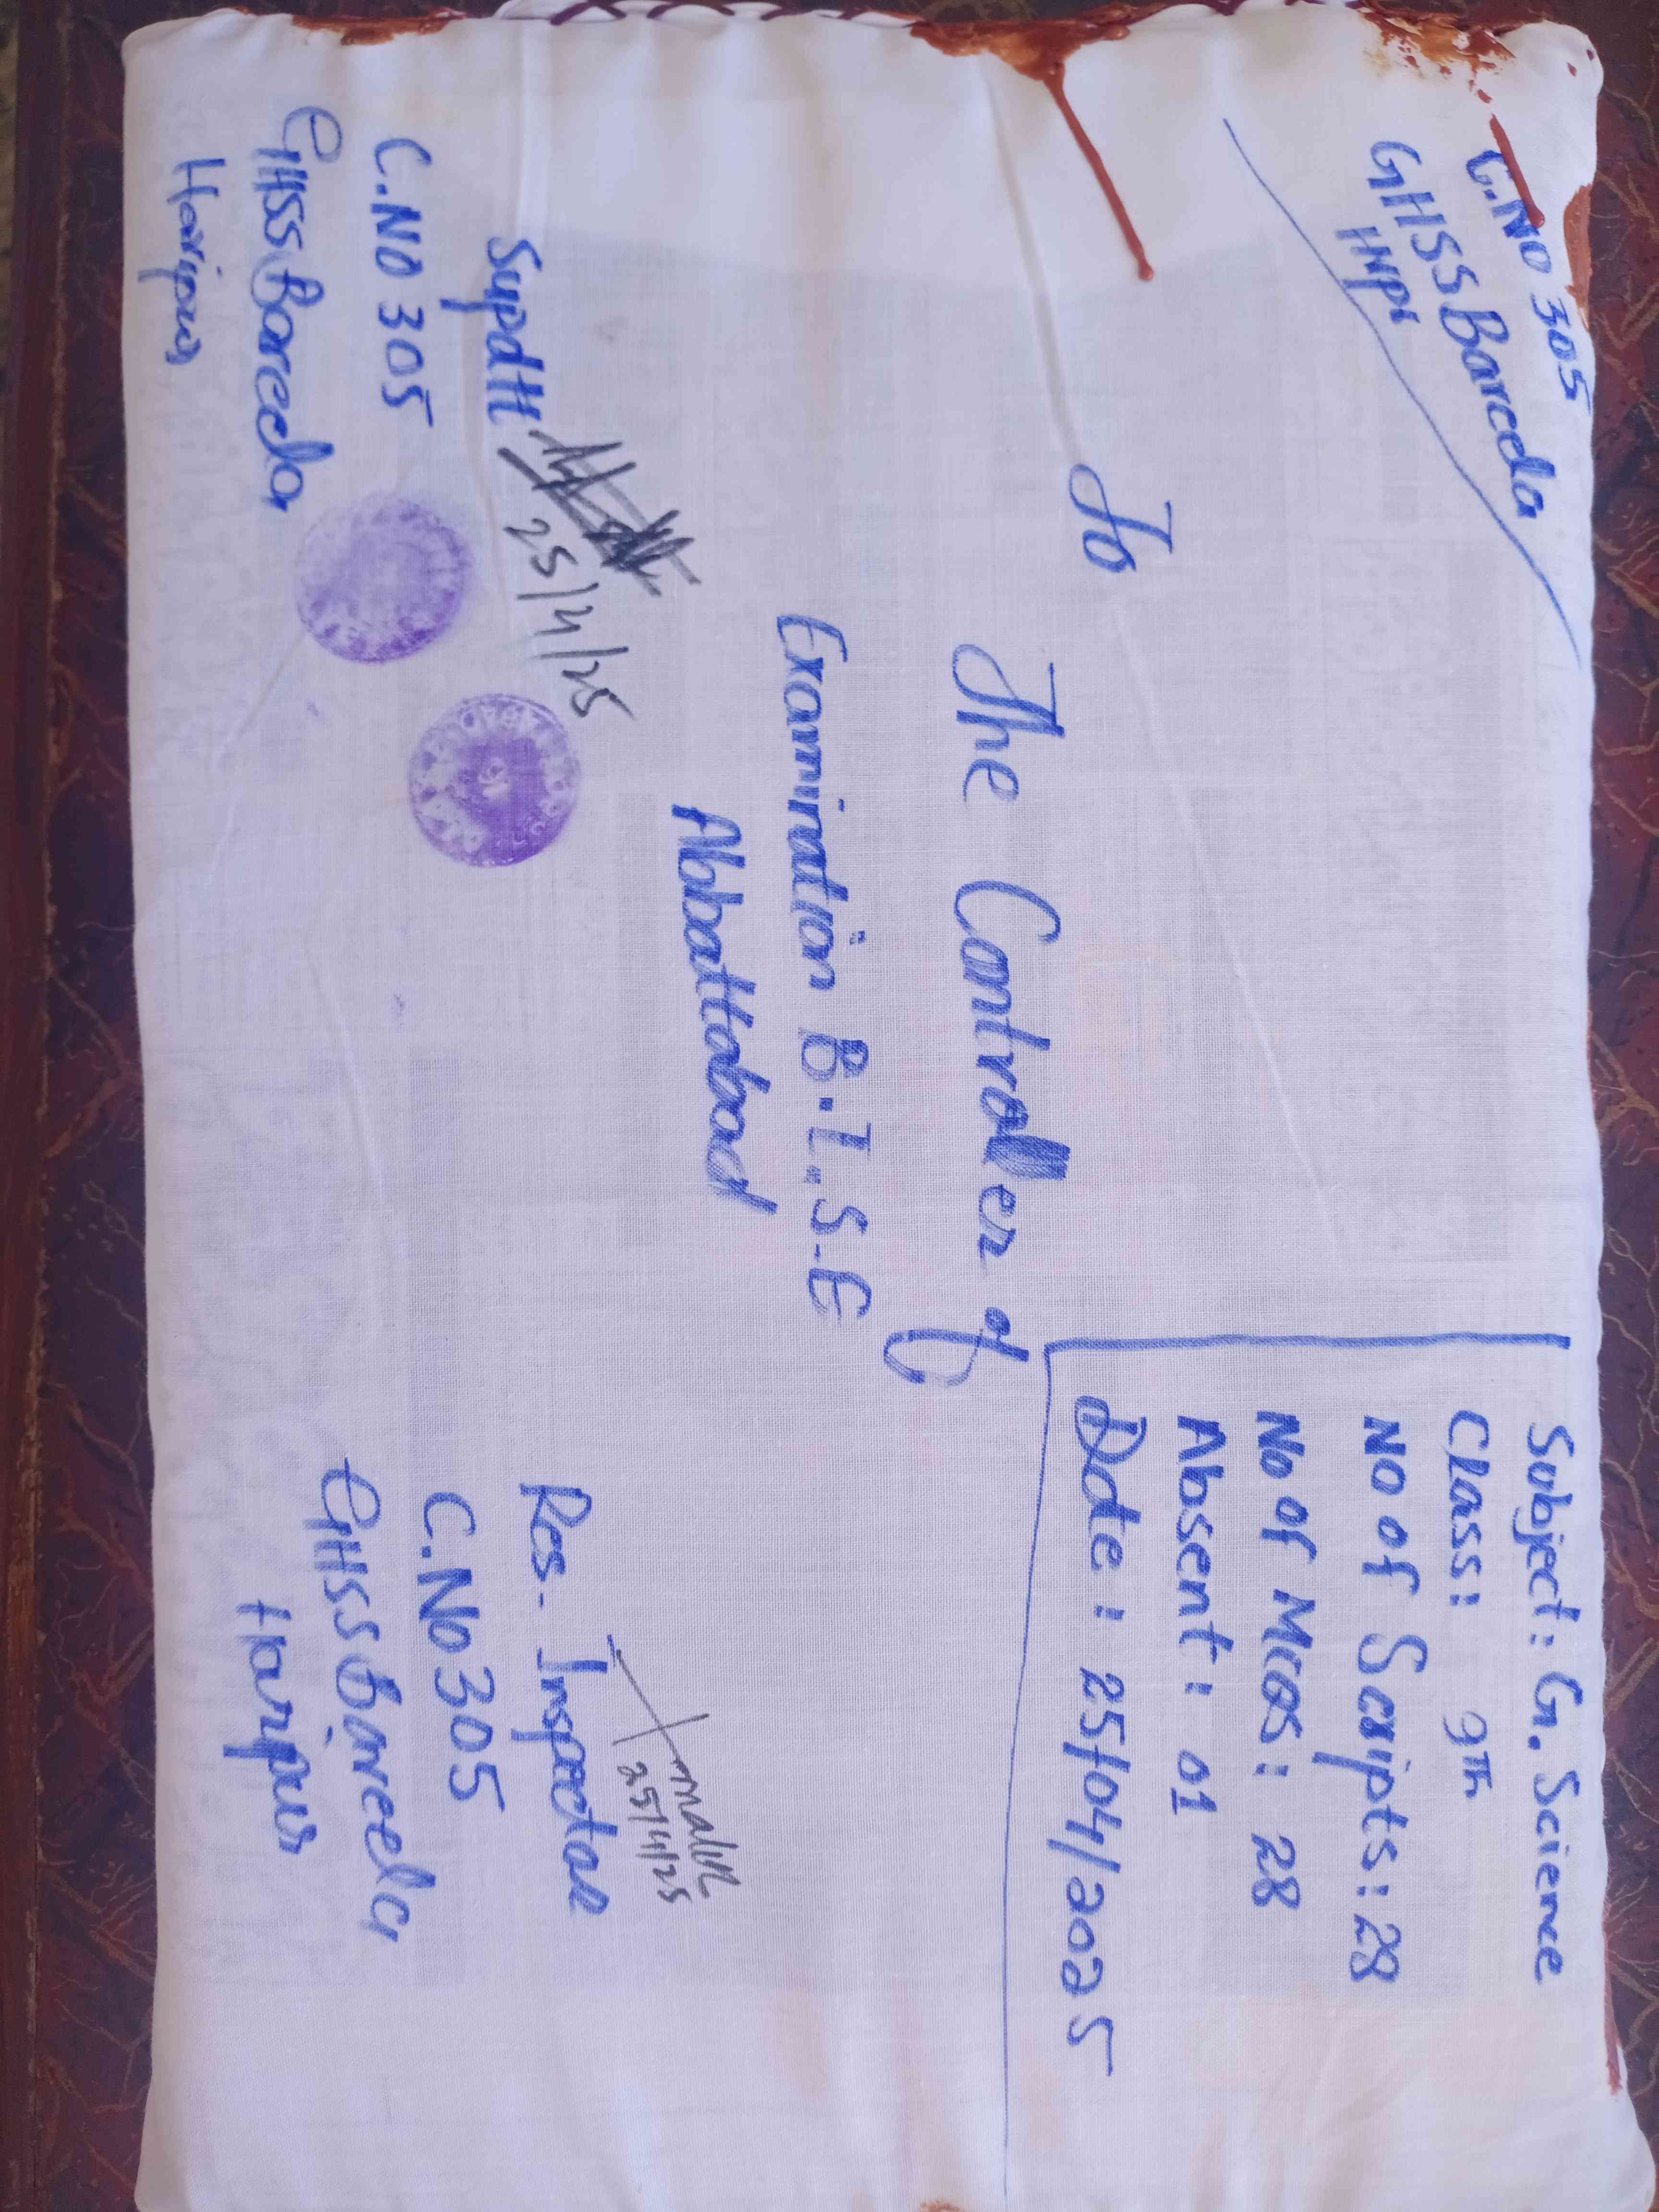 C.NO 305
GHSS Bareela
HNPr
Subject: G. Science
Class: 9Th
No of Scripts: 28
No of Mcqs: 28
Absent: 01
Date: 25/04/2025
To
The Controller of
Examination B.I.S.E
Abbattabad
Supdtt
25/4/25
C.NO 305
GHSS Bareela
Haripur
malik
25/4/25
Res. Inspector
C.No 305
GHSS Bareela
Haripur